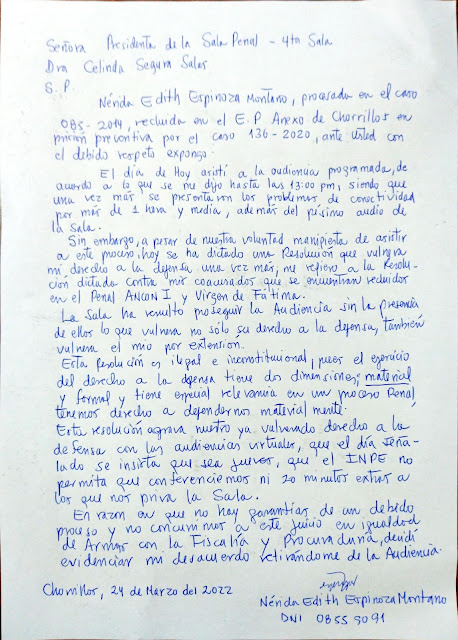 Señora Presidenta de la Sala Penal - 4ta Sala
Dra Celinda Segura Salas
S. P.
Nérida Edith Espinoza Montano, procesada en el caso
085-2014, recluida en el E.P Anexo de Chorrillos en
prisión preventiva por el caso 136-2020, ante Usted con
el debido respeto expongo:
El día de Hoy asistí a la audiencia programada, de
acuerdo a lo que se me dijo hasta las 13:00 pm, siendo que
una vez más se presentaron los problemas de conectividad
por más de 1 hora y media, además del pésimo audio de
la Sala.
Sin embargo, a pesar de nuestra voluntad manifiesta de asistir
a este proceso, hoy se ha dictado una Resolución que vulnera
mi derecho a la defensa una vez más, me refiero a la Resolu-
ción dictada contra mis coacusados que se encuentran recluidos
en el Penal ANCON I y Virgen de Fátima.
La Sala ha resuelto proseguir la Audiencia sin la presencia
de ellos lo que vulnera no sólo su derecho a la defensa, también
vulnera el mío por extensión.
Esta resolución es ilegal e inconstitucional, pues el ejercicio
del derecho a la defensa tiene dos dimensiones; material
y formal y tiene especial relevancia en un proceso Penal
tenemos derecho a defendernos materialmente.
Esta resolución agrava nuestro ya vulnerado derecho a la
defensa con las audiencias virtuales, que el día seña-
lado se insista que sea jueves, que el INPE no
permita que conferenciemos ni 20 minutos extras a
los que nos priva la Sala.
En razón en que no hay garantías de un debido
proceso y no concurrimos a este juicio en igualdad
de Armas con la Fiscalía y Procuraduría, decidí
evidenciar mi desacuerdo retirándome de la Audiencia.
Chorrillos, 24 de Marzo del 2022
Nérida Edith Espinoza Montano
DNI 08559091